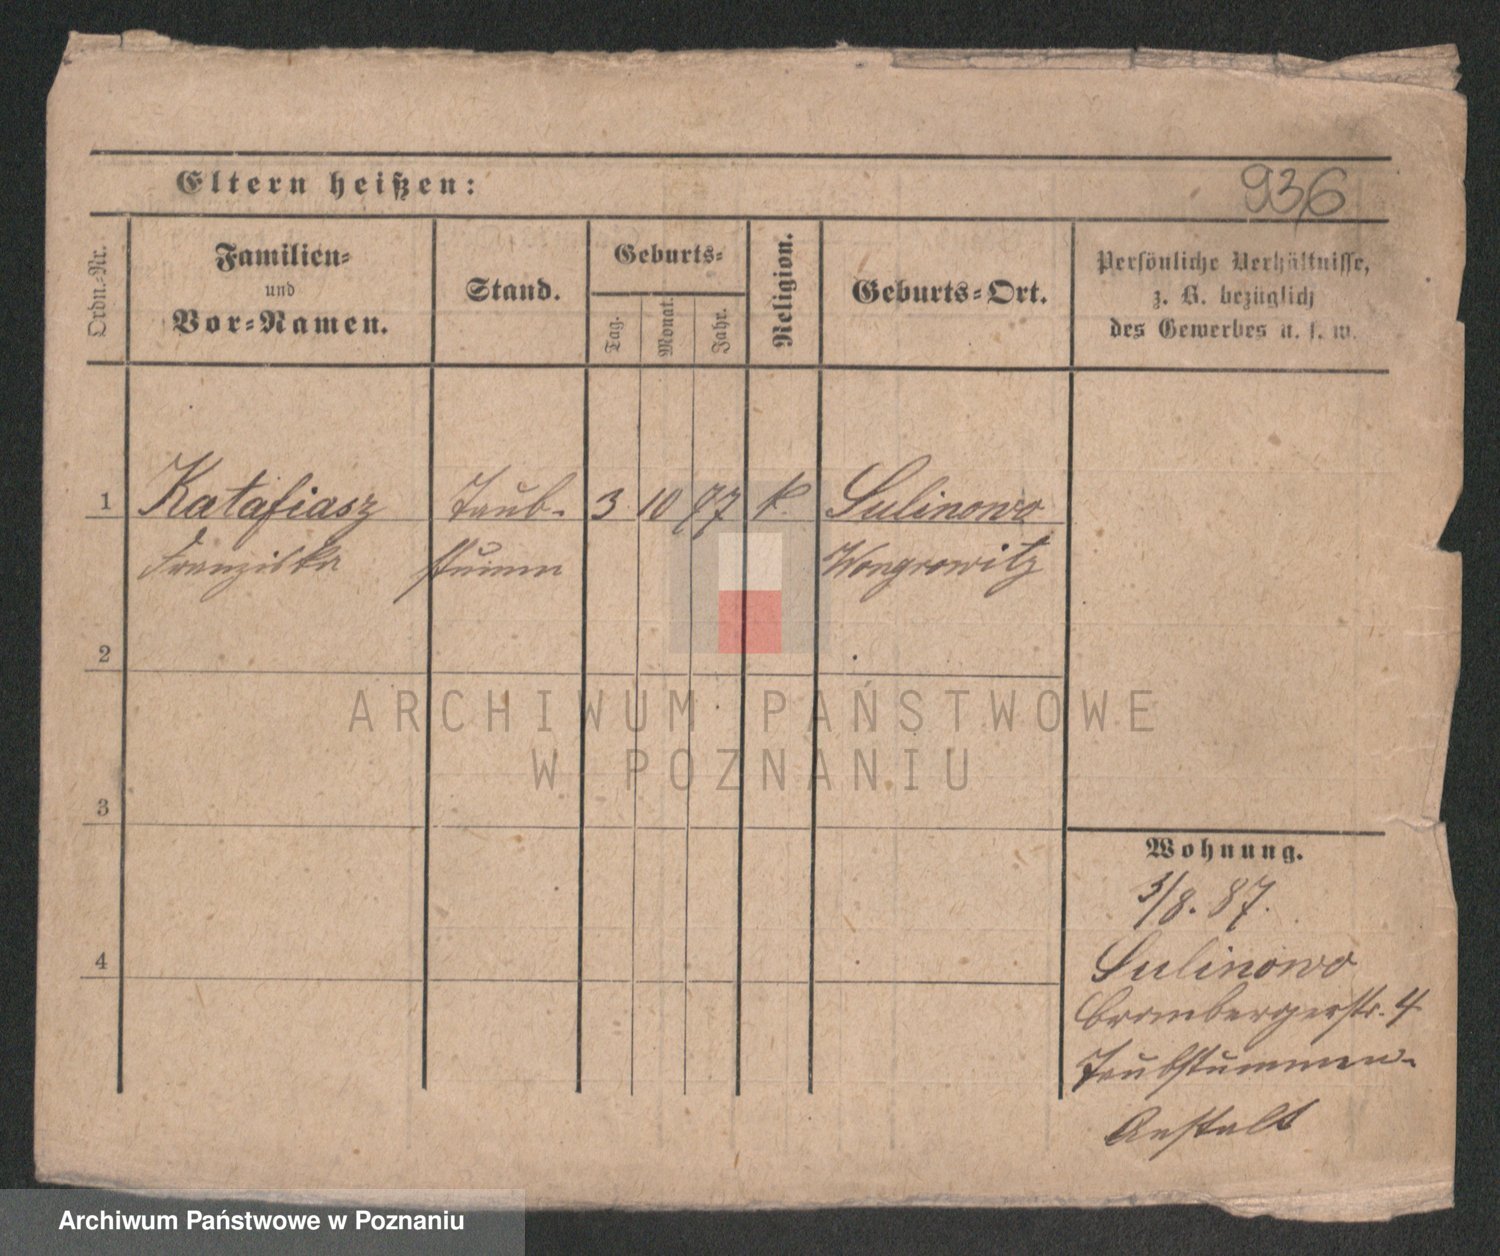 Eltern heißen:
936
Ordn.-Nr.
Familien-
und
Vor-Namen.
Stand.
Geburts-
Tag.
Monat.
Jahr.
Religion.
Geburts-Ort.
Persönliche Verhältnisse,
z. B. bezüglich
des Gewerbes u. s. w.
1 Katafiasz Taub- 3 10 77 k. Sulinowo
Franziska stumm Wongrowitz
2
3
4
Wohnung.
3/8. 87.
Sulinowo
Brombergerstr. 4
Taubstummen-
Anstalt
ARCHIWUM PAŃSTWOWE
W POZNANIU
Archiwum Państwowe w Poznaniu